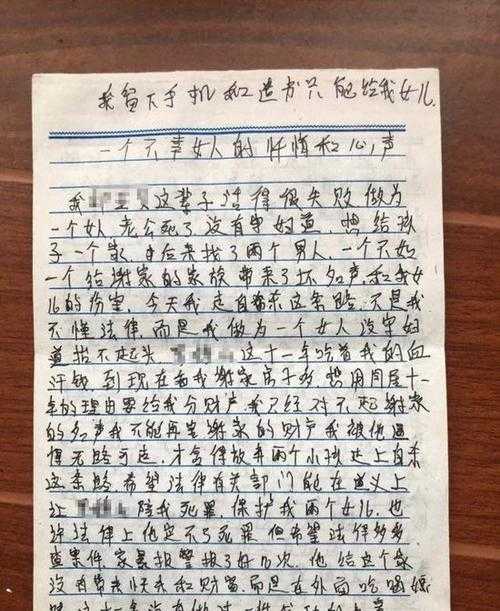 我留下手机和遗书只能给我女儿
一个不幸女人的忏悔和心声
我 这辈子活得很失败做为
一个女人老公死了没有守妇道，想给孩
子一个家，自后来找了两个男人，一个不如
一个给谢家的家族带来了坏名声，和我女
儿的伤害，今天我走自杀这条路，不是我
不懂法律，而是我做为一个女人没守妇
道抬不起头 这十一年吃着我的血
汗钱 到现在看我谢家房子多，想用同居十一
年的理由要给我分财产，我已经对不起谢家
的名声我不能再害谢家的财产我被他逼
得无路可走，才舍得放弃两个小孩走上自杀
这条路，希望法律有关部门能在道义上
让 陪我死罪，保护我两个女儿，也
许法律上他定不了死罪 但希望法得多多
查案件，家暴报警报了好几次，他给这个家
没有带来快乐和财富，而是在外面吃喝嫖